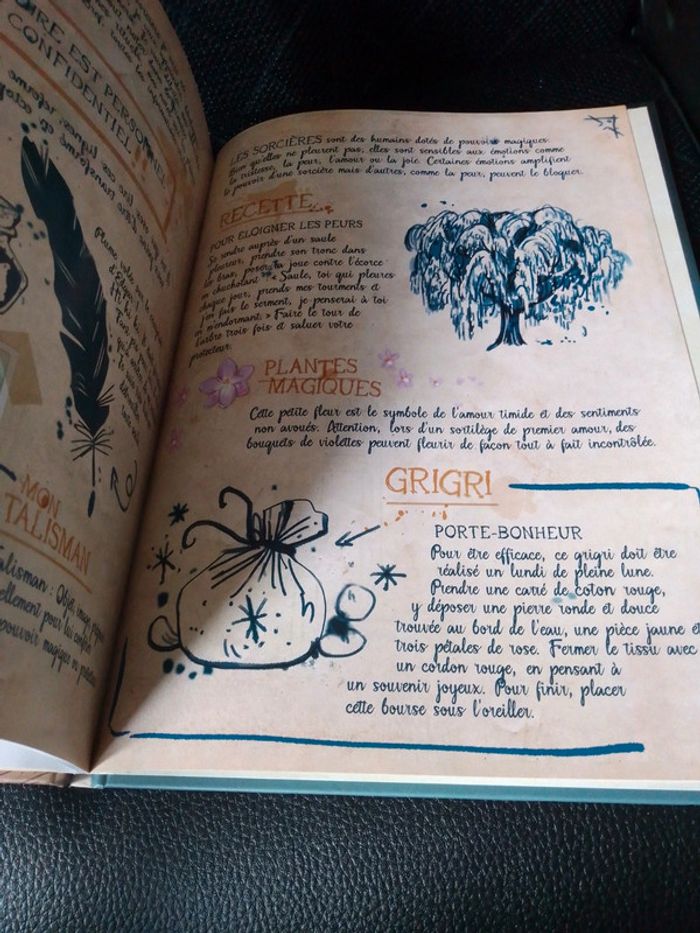 OIRE EST PERSO
CONFIDENTIEL
Plume
MON
TALISMAN
alisman : Objet
ellement pour lui
pouvoir magique
LES SORCIÈRES sont des humains dotés de pouvoirs magiques.
Bien qu'elles ne pleurent pas, elles sont sensibles aux émotions comme
la tristesse, la peur, l'amour ou la joie. Certaines émotions amplifient
le pouvoir d'une sorcière mais d'autres, comme la peur, peuvent le bloquer.
RECETTE
POUR ÉLOIGNER LES PEURS
Se rendre auprès d'un saule
pleureur, prendre son tronc dans
les bras, poser la joue contre l'écorce
en chuchotant : « Saule, toi qui pleures
chaque jour, prends mes tourments et
j'en fais le serment, je penserai à toi
en m'endormant. » Faire le tour de
l'arbre trois fois et saluer votre
protecteur.
PLANTES
MAGIQUES
Cette petite fleur est le symbole de l'amour timide et des sentiments
non avoués. Attention, lors d'un sortilège de premier amour, des
bouquets de violettes peuvent fleurir de façon tout à fait incontrôlée.
GRIGRI
PORTE-BONHEUR
Pour être efficace, ce grigri doit être
réalisé un lundi de pleine lune.
Prendre une carré de coton rouge,
y déposer une pierre ronde et douce
trouvée au bord de l'eau, une pièce jaune et
trois pétales de rose. Fermer le tissu avec
un cordon rouge, en pensant à
un souvenir joyeux. Pour finir, placer
cette bourse sous l'oreiller.